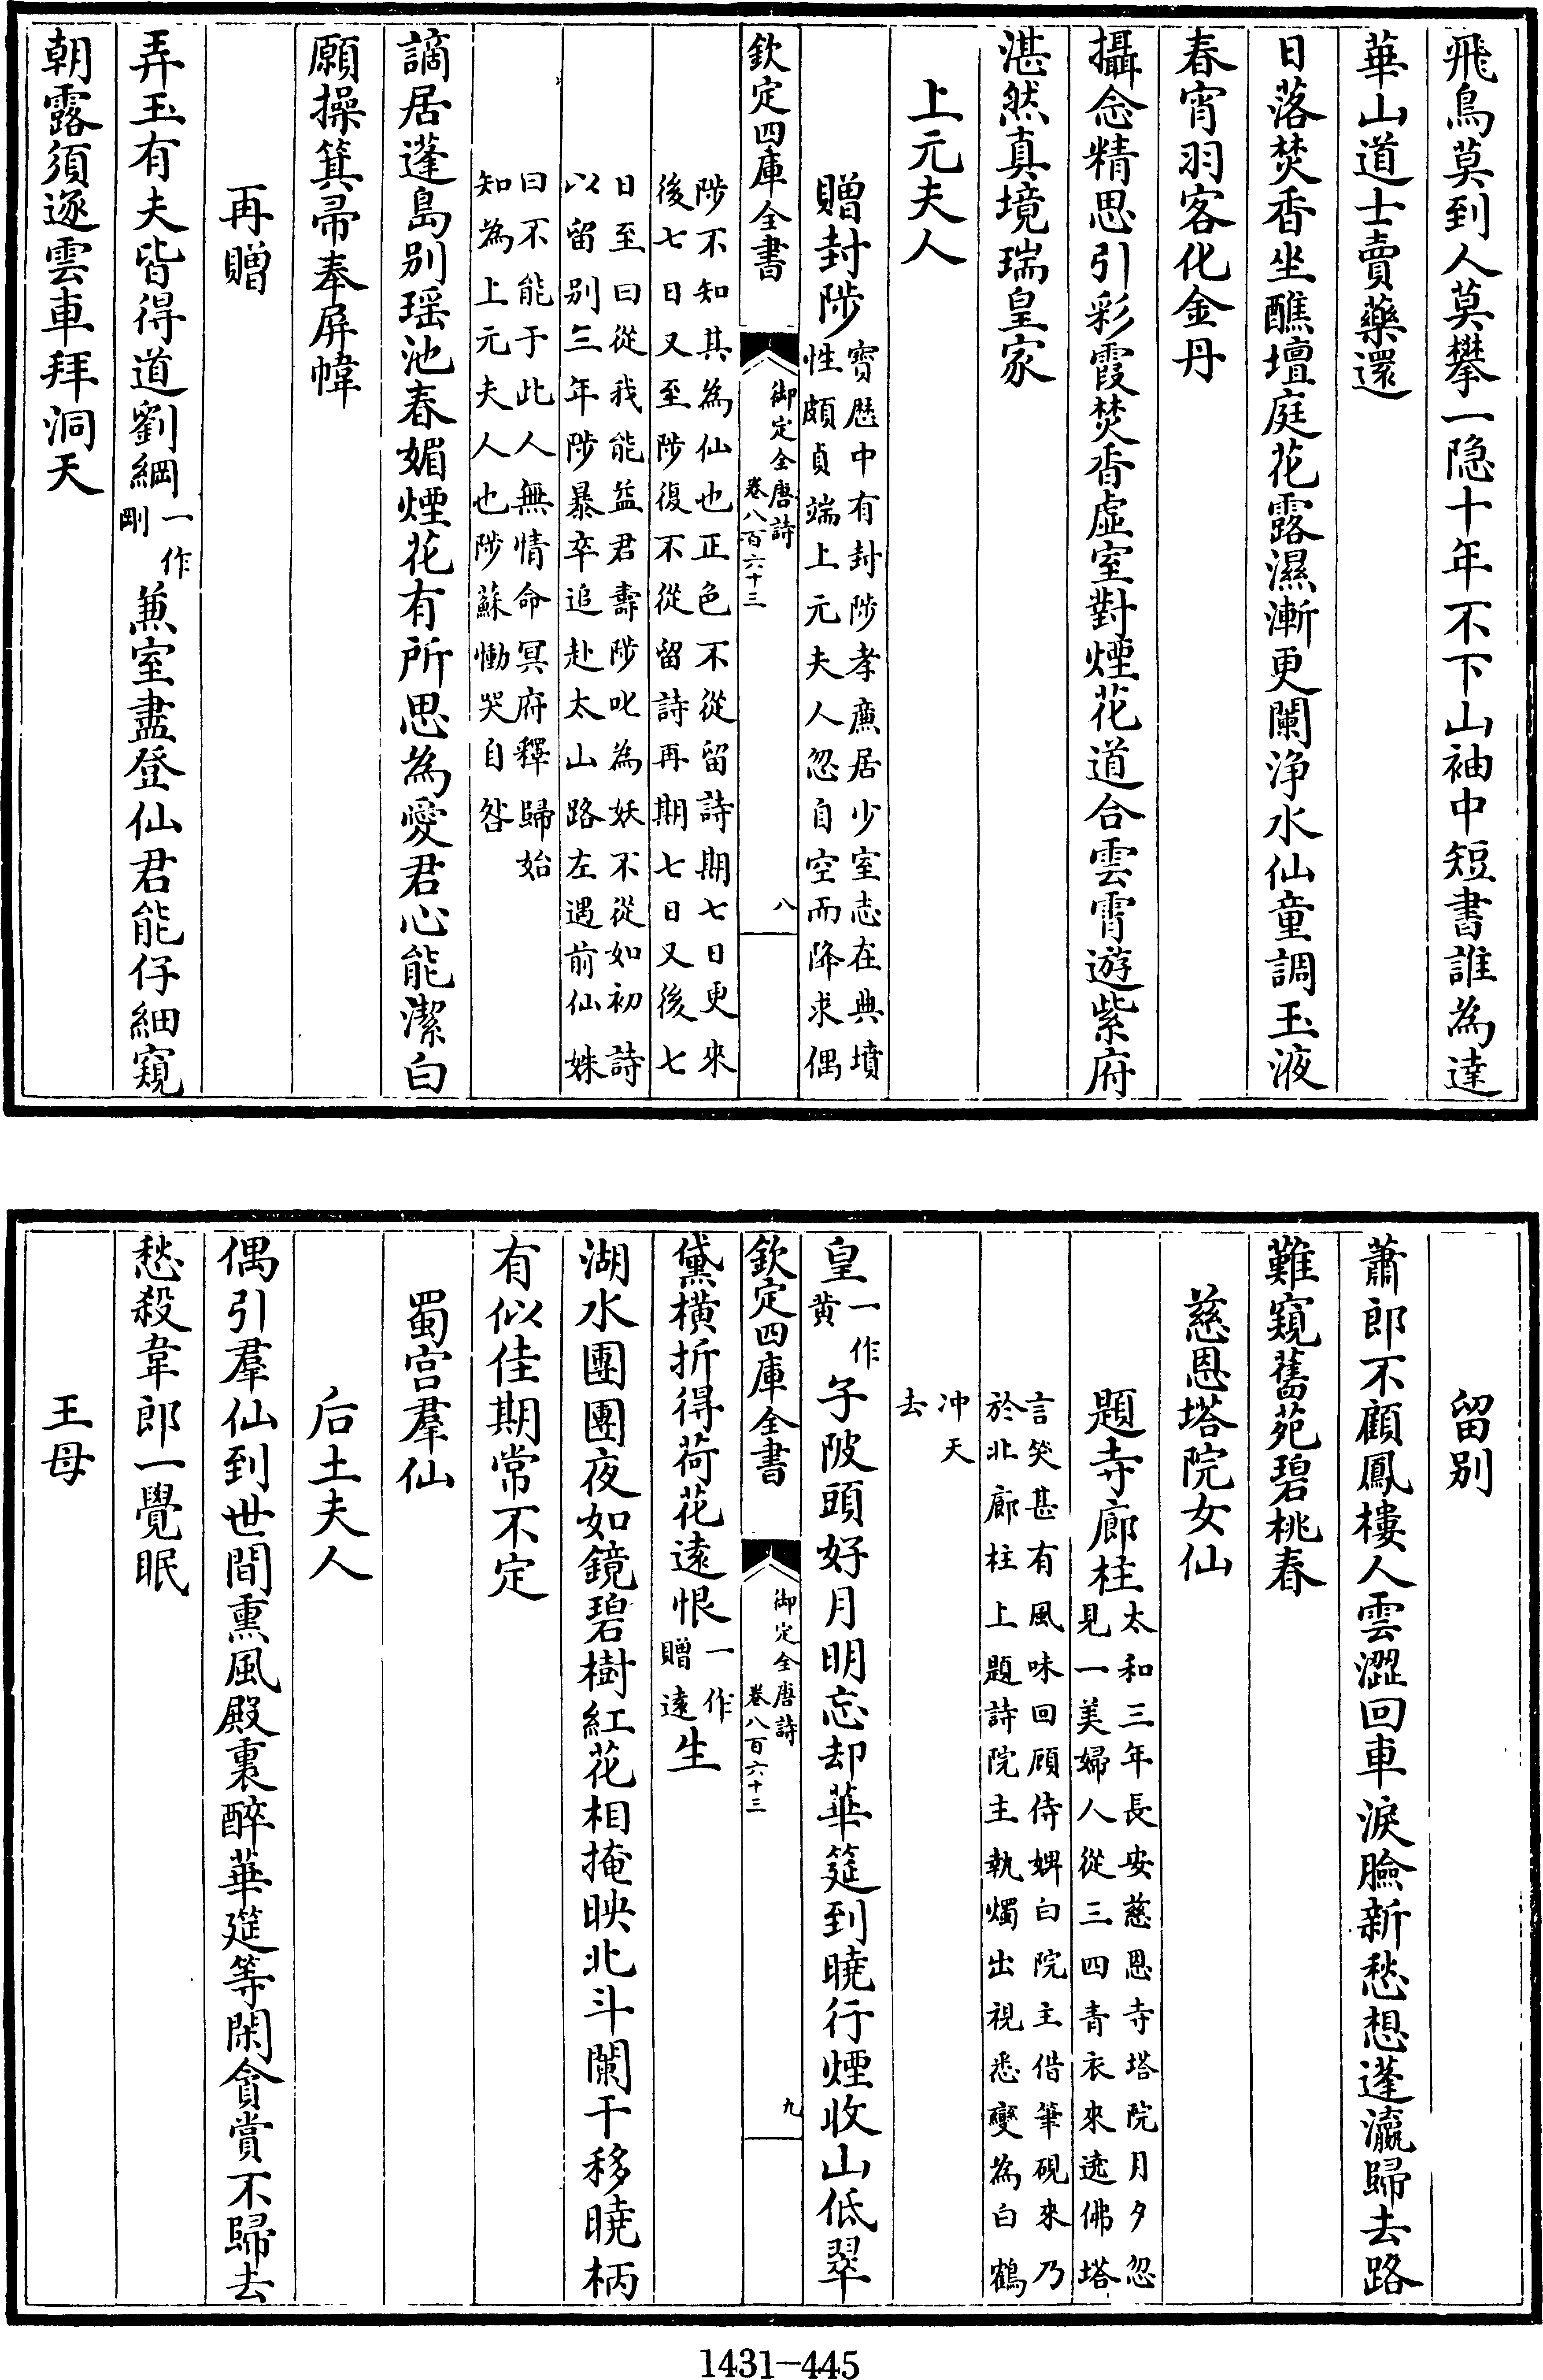 飛鳥莫到人莫攀一隐十年不下山袖中短書誰為達
華山道士賣藥還
日落焚香坐醮壇庭花露濕漸更闌浄水仙童調玉液
春宵羽客化金丹
攝念精思引彩霞焚香虚室對煙花道合雲霄遊紫府
湛然真境瑞皇家
上元夫人
贈封陟寳歴中有封陟孝廉居少室志在典墳
性頗貞端上元夫人忽自空而降求偶
欽定四庫全書
御定全唐詩
卷八百六十三
八
陟不知其為仙也正色不從留詩期七日更來
後七日又至陟復不從留詩再期七日又後七
日至曰從我能益君壽陟叱為妖不從如初詩
以留别三年陟暴卒追赴太山路左遇前仙姝
曰不能于此人無情命冥府釋歸始
知為上元夫人也陟蘇慟哭自咎
謫居蓬島别瑶池春媚煙花有所思為愛君心能潔白
願操箕帚奉屏幃
再贈
弄玉有夫皆得道劉綱一作剛兼室盡登仙君能仔細窺
朝露須逐雲車拜洞天
留别
蕭郎不顧鳳樓人雲澀回車淚臉新愁想蓬瀛歸去路
難窺舊苑碧桃春
慈恩塔院女仙
題寺廊柱太和三年長安慈恩寺塔院月夕忽
見一美婦人從三四青衣來遶佛塔
言笑甚有風味回顧侍婢白院主借筆硯來乃
於北廊柱上題詩院主執燭出視悉變為白鶴
冲天
去
皇一作黄子陂頭好月明忘却華筵到曉行煙收山低翠
欽定四庫全書
御定全唐詩
卷八百六十三
九
黛横折得荷花遠恨一作贈遠生
湖水團團夜如鏡碧樹紅花相掩映北斗闌干移曉柄
有似佳期常不定
蜀宫羣仙
后土夫人
偶引羣仙到世間熏風殿裏醉華筵等閑貪賞不歸去
愁殺韋郎一覺眠
王母
1431-445